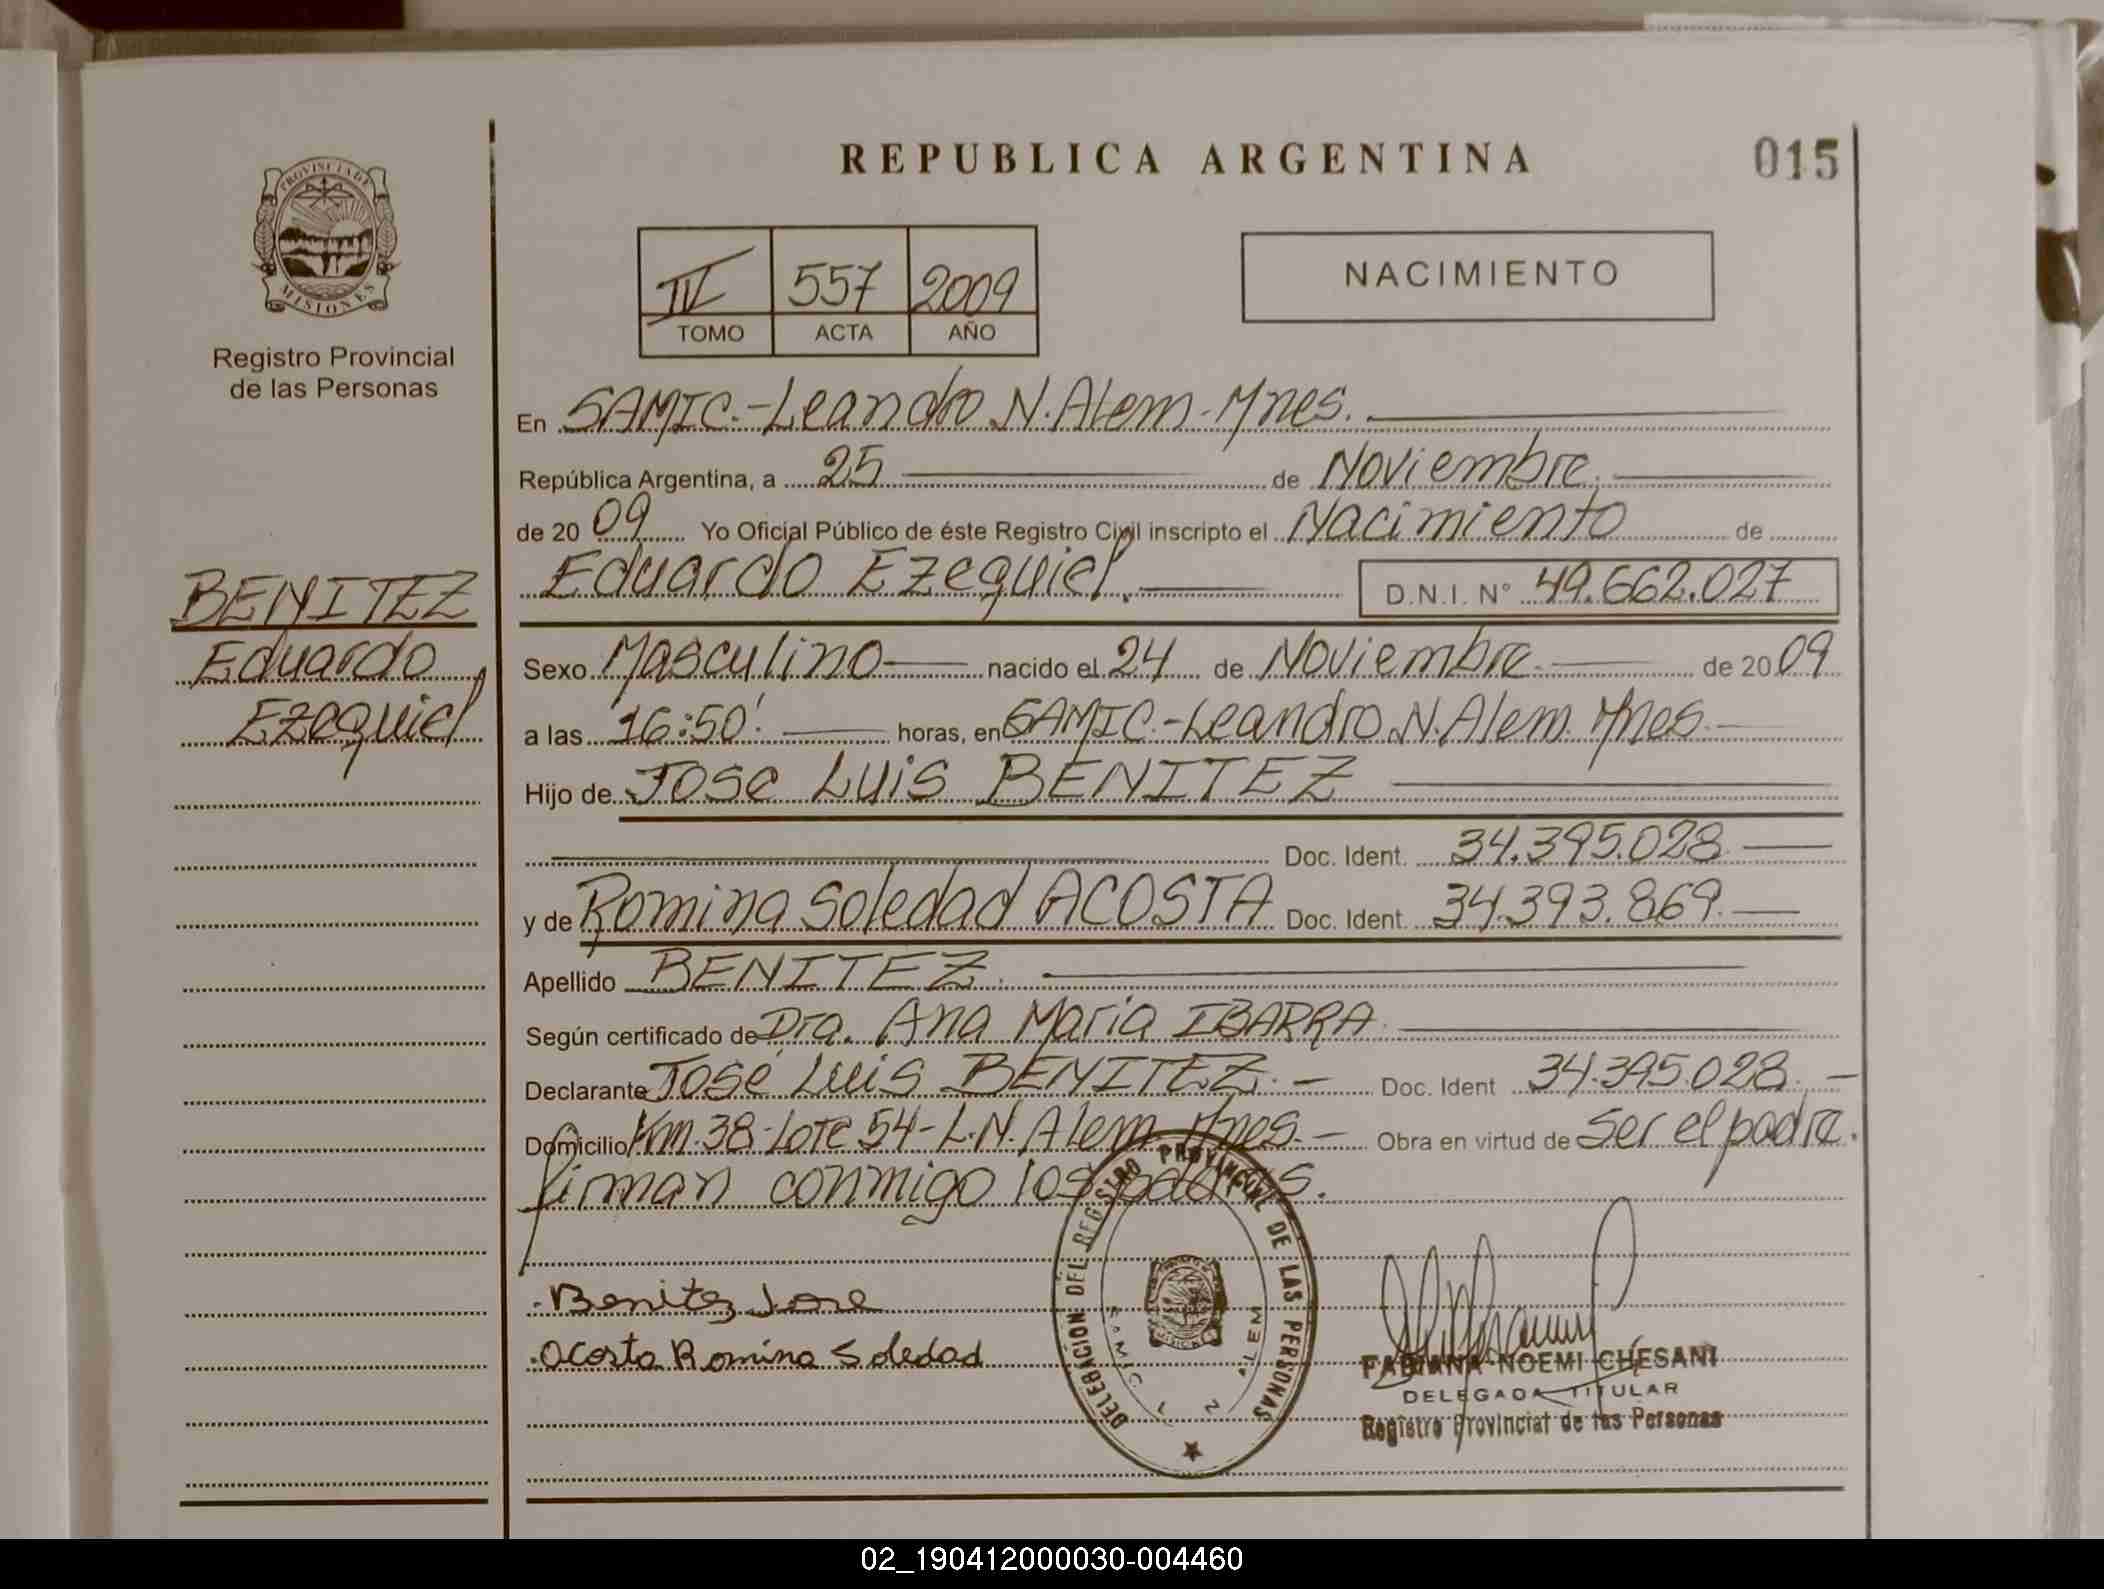 REPUBLICA ARGENTINA
015
PROVINCIA DE
MISIONES
Registro Provincial
de las Personas
IV 557 2009
TOMO ACTA AÑO
NACIMIENTO
En SAMIC.-Leandro N. Alem-Mnes.
República Argentina, a 25 de Noviembre.
de 2009 Yo Oficial Público de éste Registro Civil inscripto el Nacimiento de
Eduardo Ezequiel. D.N.I. N° 49.662.027
BENITEZ
Eduardo
Ezequiel
Sexo Masculino nacido el 24 de Noviembre de 2009
a las 16:50' horas, en SAMIC.-Leandro N. Alem. Mnes.
Hijo de Jose Luis BENITEZ
Doc. Ident. 34.395.028
y de Romina Soledad ACOSTA Doc. Ident. 34.393.869.
Apellido BENITEZ.
Según certificado de Dra. Ana Maria IBARRA
Declarante José Luis BENITEZ.- Doc. Ident 34.395.028.-
Domicilio Km.38-Lote 54-L.N.Alem Mnes.- Obra en virtud de ser el padre.
firman conmigo los padres.
Benitez Jose
Acosta Romina Soledad
DELEGACION DEL REGISTRO PROVINCIAL DE LAS PERSONAS
SAMIC L N ALEM
FABIANA NOEMI CHESANI
DELEGADA TITULAR
Registro Provincial de las Personas
02_190412000030-004460